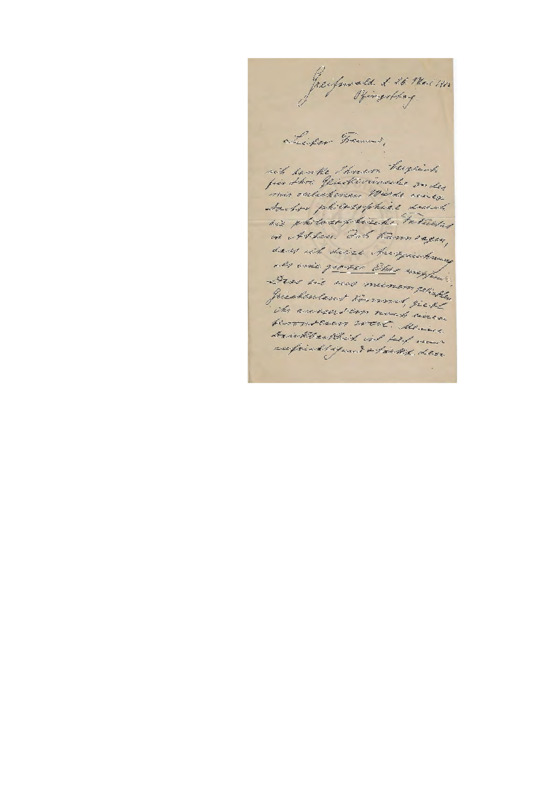 Greifswald d 26 Mai
Pfingsttag
Lieber Freund,
ich danke Ihnen
für Ihre Glückwünsche zu der
mir verliehenen Würde eines
doctor philosophiae durch
die philosophische Fakultät
in Athen. Ich kann sagen,
dass ich diese Auszeichnung
als eine grosse Ehre empfinde.
Dass sie aus meinem geliebten
Griechenland kommt, giebt
ihr ausserdem noch einen
besonderen Wert. Meine
Dankbarkeit ist tief und
aufrichtig und